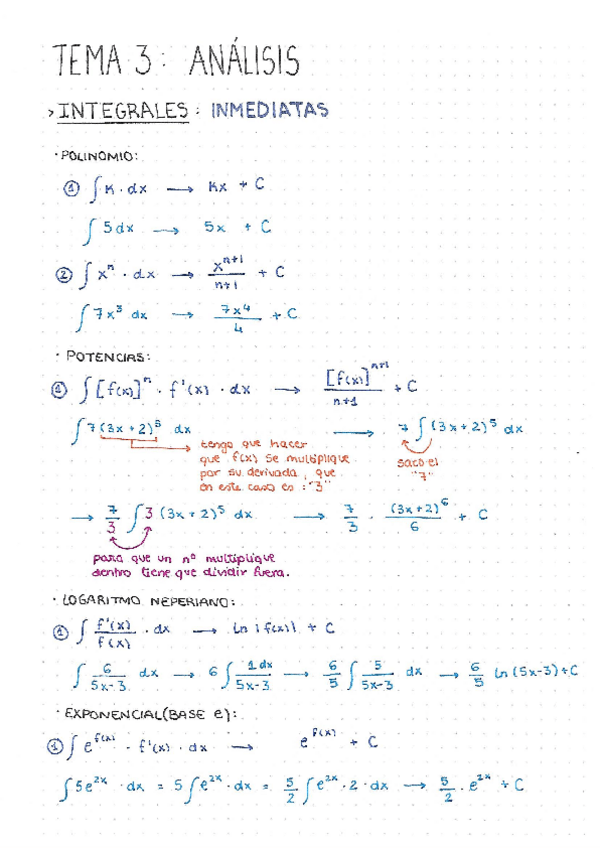 TEMA 3: ANÁLISIS
> INTEGRALES: INMEDIATAS
· POLINOMIO:
① ∫ K · dx → Kx + C
∫ 5 dx → 5x + C
② ∫ xⁿ · dx → xⁿ⁺¹/n+1 + C
∫ 7x³ dx → 7x⁴/4 + C
· POTENCIAS:
① ∫ [f(x)]ⁿ · f'(x) · dx → [f(x)]ⁿ⁺¹/n+1 + C
∫ 7(3x+2)⁵ dx → 7 ∫ (3x+2)⁵ dx
tengo que hacer
que f(x) se multiplique
por su derivada, que
en este caso es: "3"
saco el
"7"
→ 7/3 ∫ 3 (3x+2)⁵ dx → 7/3 · (3x+2)⁶/6 + C
para que un nº multiplique
dentro tiene que dividir fuera.
· LOGARITMO NEPERIANO:
① ∫ f'(x)/f(x) · dx → ln |f(x)| + C
∫ 6/5x-3 dx → 6 ∫ 1 dx/5x-3 → 6/5 ∫ 5/5x-3 dx → 6/5 ln (5x-3)+C
· EXPONENCIAL (BASE e):
① ∫ e^f(x) · f'(x) · dx → e^f(x) + C
∫ 5e²ˣ · dx = 5 ∫ e²ˣ · dx = 5/2 ∫ e²ˣ · 2 · dx → 5/2 · e²ˣ + C